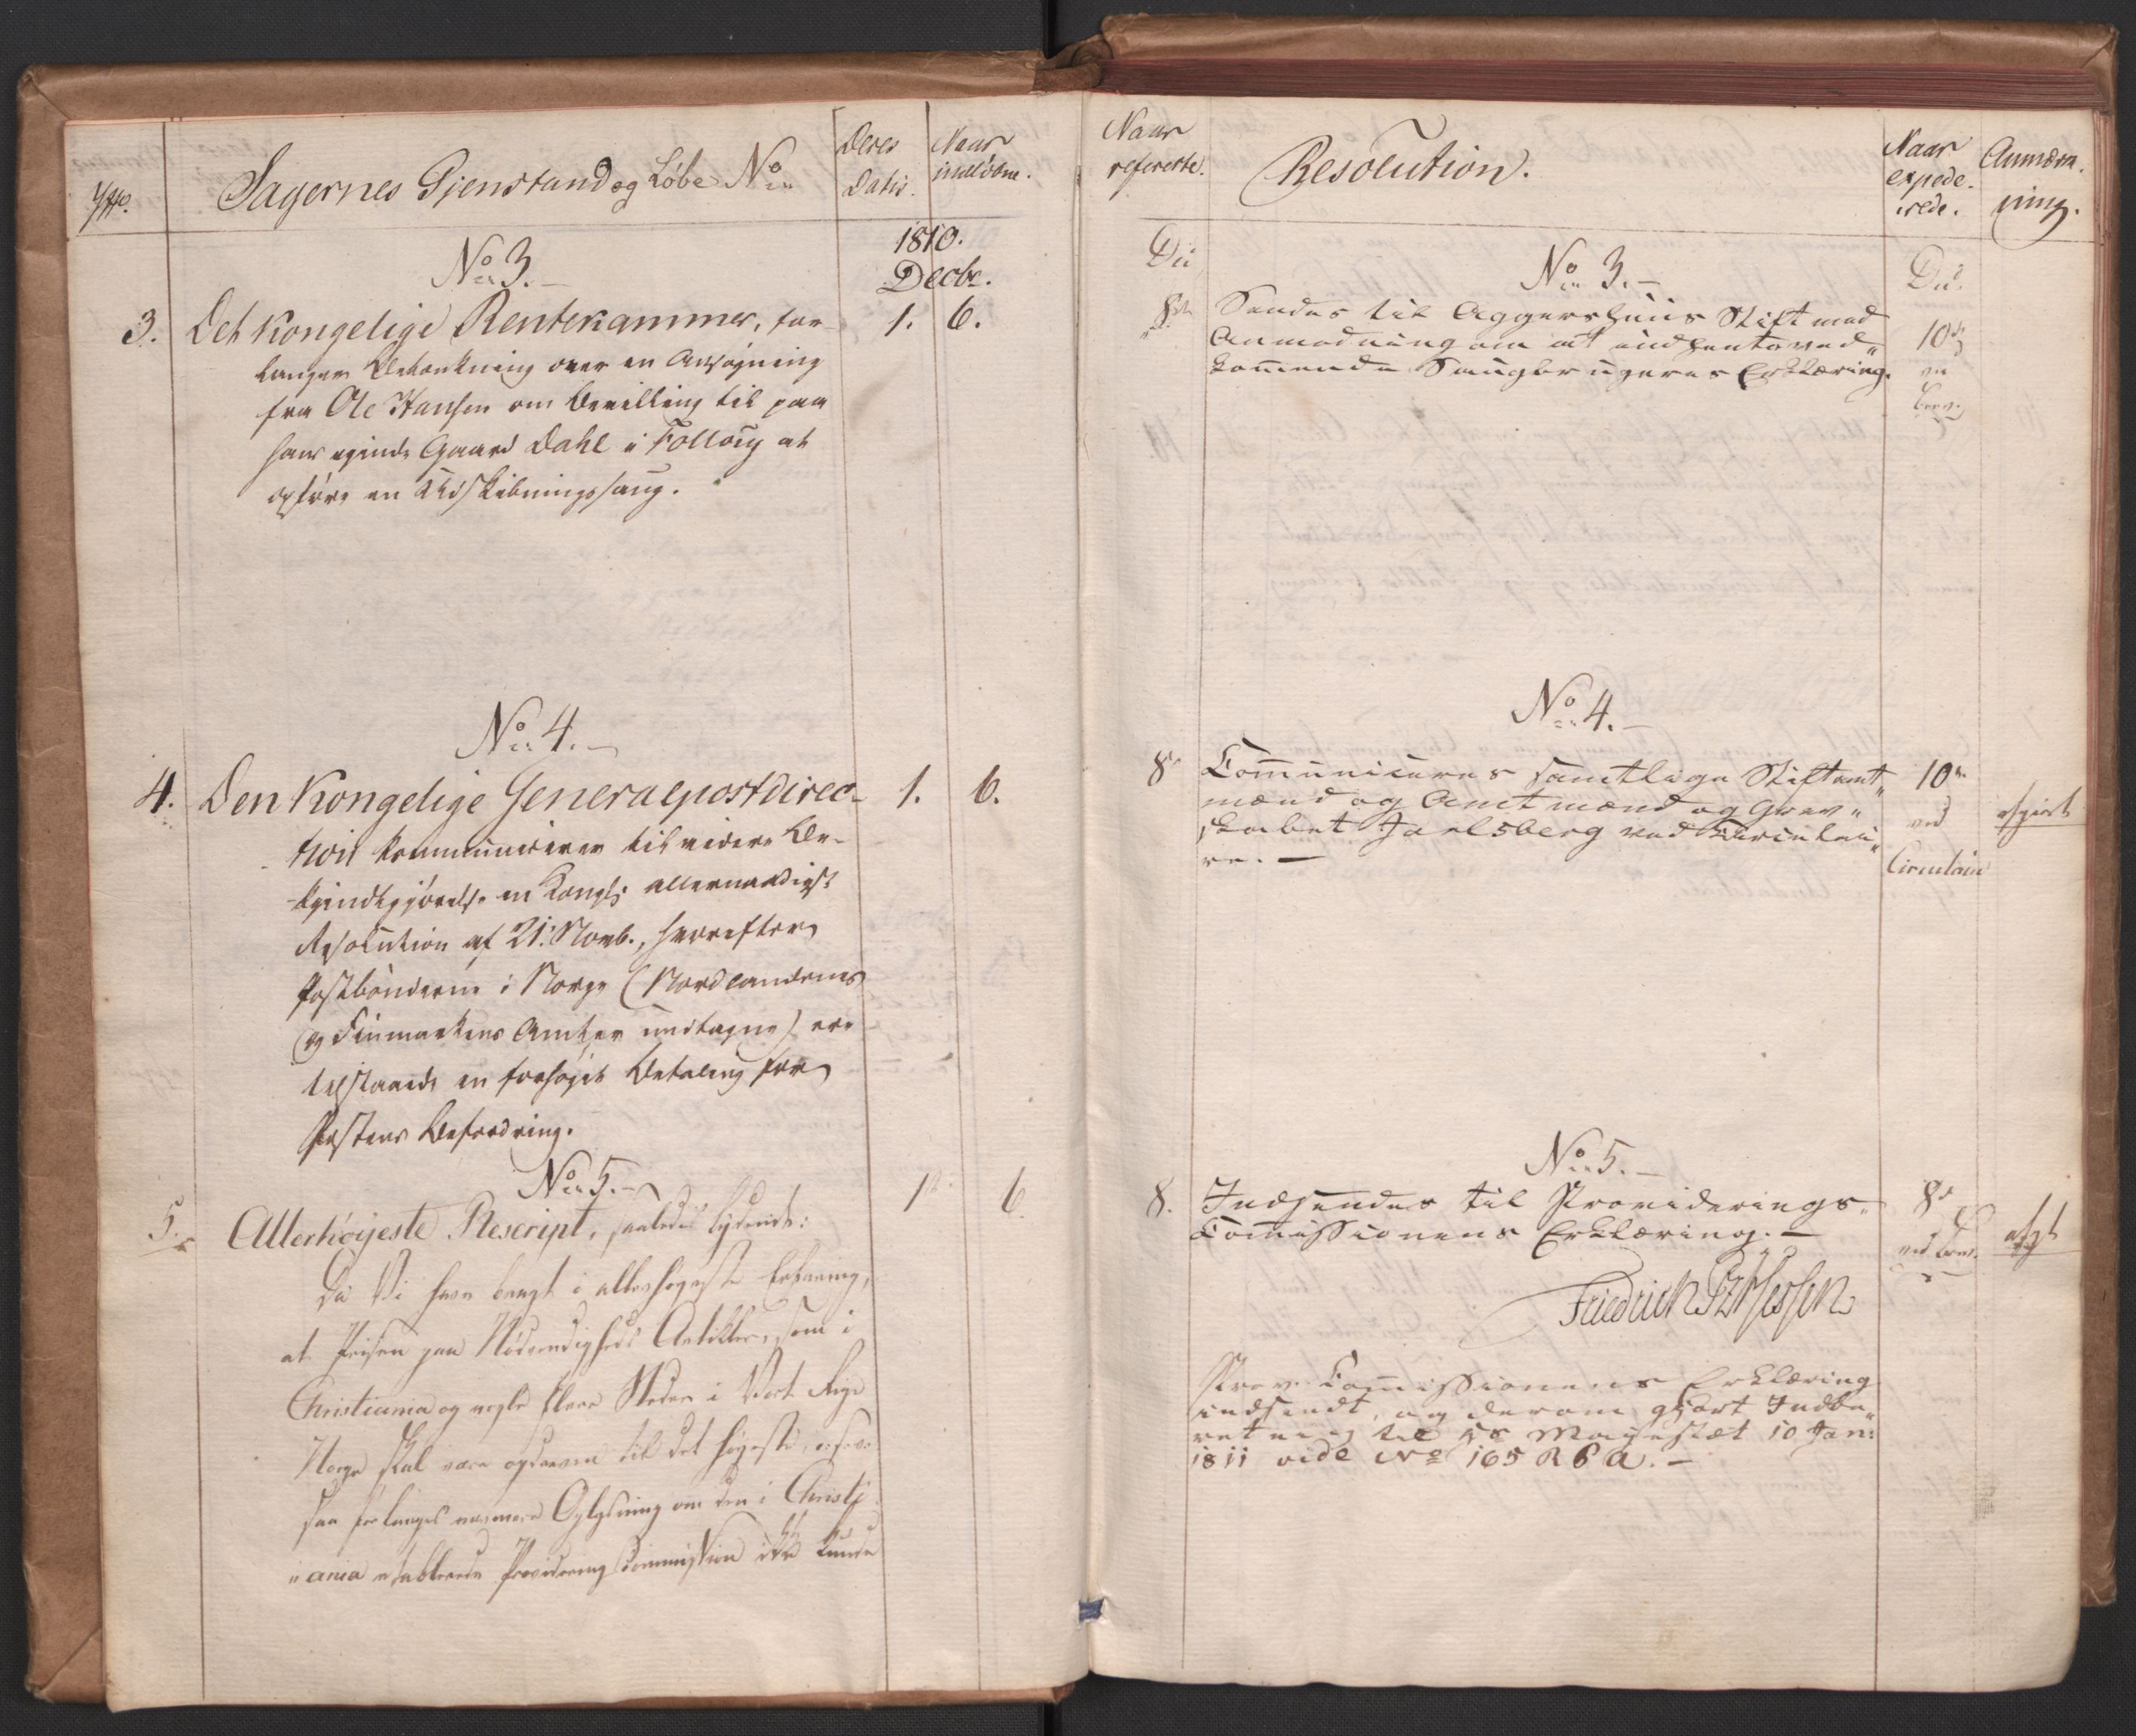 Sagernes Gjenstand og Løbe No
Deres
Datis.
Naar
indkomne.
1810.
Decbr.
No 3.
3. Det Kongelige Rentekammer, for- 1. 6.
langer Betænkning over en Ansøgning
fra Ole Hansen om Bevilling til paa
hans eyende Gaard Dahl i Folloug at
opføre en Udskibningssaug.
No 4.
4. Den Kongelige Generalpostdirec- 1. 6.
tion kommunicerer til videre Be-
kjendtgjørelse en Kongl: allernaadigst
Resolution af 21: Novb., hvorefter
Postbønderne i Norge (Nordlandenes
og Finmarkens Amter undtagne) ere
tilstaaede en forhøjet Betaling for
Postens Befordring.
No 5.
5. Allerhöijeste Rescript, saaledes lydende: 1 6
Da Vi have bragt i allerhøyeste Erfaring,
at Prisen paa Nødvendigheds Artikler, som i
Christiania og nogle flere Steder i Vort Rige
Norge skal være opdreven til det høyeste,
saa forlanges nærmere Oplysning om den i Christi
"ania etablerede Provideringscommission ikke kunde
Naar
refererte.
Resolution.
Naar
expede-
rede.
Anmærk-
ning.
Dec
No 3.
Dec.
8de Sendes til Aggershuus Stift med 10de
Anmodning om at indhente ved"
kommende Saugbrugeres Erklæring.
ved
Brev.
No 4.
8de Communiceres samtlige Stiftamt" 10de
mænd og Amtmænd og Grev"
skabet Jarlsberg ved Circulai"
re. —
ved
Circulaire
afgjort
No 5.
8. Indsendes til Providerings- 8de
Commissionens Erklæring. —
ved Brev.
afgt
Friedrich Pz Hessen
Prov: Commissionens Erklæring
indsendt, og derom gjort Indbe"
retning til Hs Mayestæt 10 Jan:
1811 vide No 165 R 6 A. —